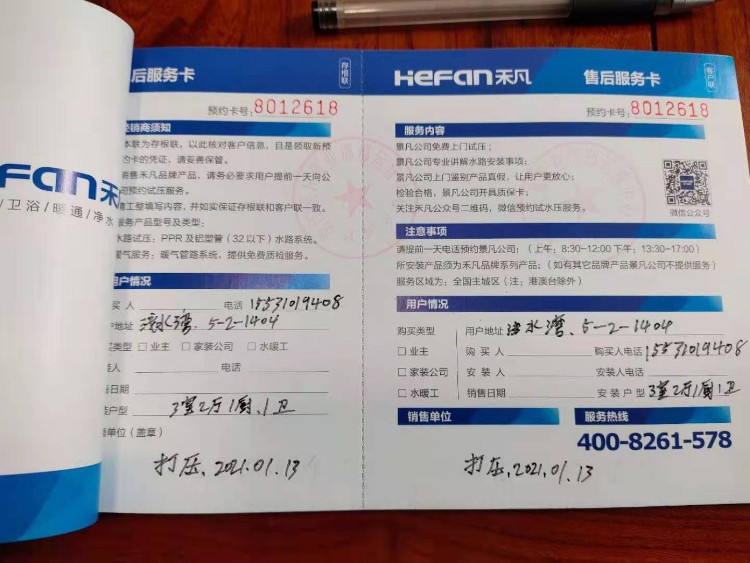 Fan禾
/卫浴/暖通/净水
后服务卡
存根联
预约卡号:8012618
经销商须知
本联为存根联，以此核对客户信息，且是领取新预
约卡的凭证，请妥善保管。
销售禾凡品牌产品，请务必要求用户提前一天向公
司预约试压服务。
请工整填写内容，并如实保证存根联和客户联一致。
服务产品型号及类型：
水路试压：PPR及铝塑管（32以下）水路系统。
暖气服务：暖气管路系统，提供免费质检服务。
用户情况
买人 电话 15531019408
户地址 滏水湾、5-2-1404
买类型 □ 业主 □ 家装公司 □ 水暖工
装人 电话
售日期
装户型 3室2厅1厨、1卫
售单位（盖章）
打压，2021.01.13
HeFan禾凡 售后服务卡
客户联
预约卡号:8012618
服务内容
景凡公司免费上门试压；
景凡公司专业讲解水路安装事项；
景凡公司上门鉴别产品真假，让用户更放心；
检验合格，景凡公司开具质保卡；
关注禾凡公众号二维码，微信预约试水压服务。
微信公众号
注意事项
请提前一天电话预约景凡公司：（上午：8:30-12:00 下午：13:30-17:00）
所安装产品须为禾凡品牌系列产品；（如有其它品牌产品景凡公司不提供服务）
服务区域为：全国主城区（注：港澳台除外）
用户情况
购买类型 用户地址 滏水湾、5-2-1404
□ 业主 购买人 购买人电话 15531019408
□ 家装公司 安装人 安装人电话
□ 水暖工 销售日期 安装户型 3室2厅1厨1卫
销售单位 服务热线
400-8261-578
打压，2021.01.13